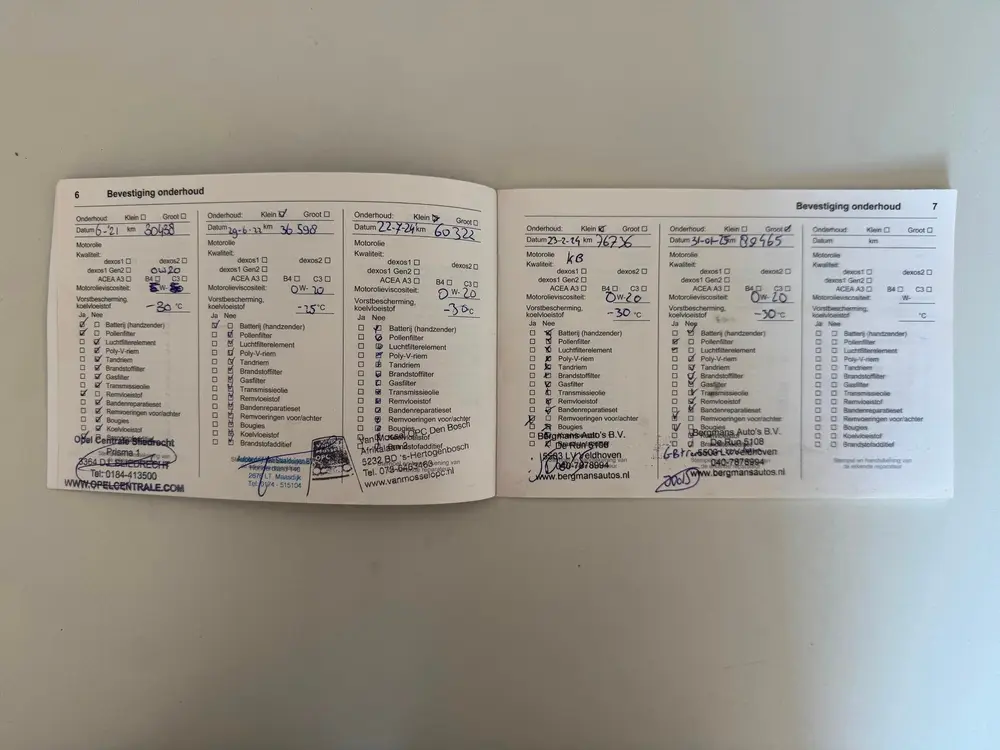 6 Bevestiging onderhoud
Onderhoud: Klein Groot
Datum 6-'21 km 30438
Motorolie
Kwaliteit:
dexos1 dexos2
dexos1 Gen2 0W20
ACEA A3 B4 C3
Motorolieviscositeit: W-
Vorstbescherming,
koelvloeistof -30 °C
Ja Nee
Batterij (handzender)
Pollenfilter
Luchtfilterelement
Poly-V-riem
Tandriem
Brandstoffilter
Gasfilter
Transmissieolie
Remvloeistof
Bandenreparatieset
Remvoeringen voor/achter
Bougies
Koelvloeistof
Opel Centrale Sliedrecht
Prisma 1
3364 DJ SLIEDRECHT
Tel: 0184-413500
WWW.OPELCENTRALE.COM
Onderhoud: Klein Groot
Datum 29-6-22 km 36598
Motorolie
Kwaliteit:
dexos1 dexos2
dexos1 Gen2
ACEA A3 B4 C3
Motorolieviscositeit: 0W-20
Vorstbescherming,
koelvloeistof -25 °C
Ja Nee
Batterij (handzender)
Pollenfilter
Luchtfilterelement
Poly-V-riem
Tandriem
Brandstoffilter
Gasfilter
Transmissieolie
Remvloeistof
Bandenreparatieset
Remvoeringen voor/achter
Bougies
Koelvloeistof
Brandstofadditief
2676 LT, Maasdijk
Tel. 0174 - 515104
Onderhoud: Klein Groot
Datum 22-7-24 km 60322
Motorolie
Kwaliteit:
dexos1 dexos2
dexos1 Gen2
ACEA A3 B4 C3
Motorolieviscositeit: 0W-20
Vorstbescherming,
koelvloeistof -30 °C
Ja Nee
Batterij (handzender)
Pollenfilter
Luchtfilterelement
Poly-V-riem
Tandriem
Brandstoffilter
Gasfilter
Transmissieolie
Remvloeistof
Bandenreparatieset
Remvoeringen voor/achter
Bougies
Koelvloeistof
Brandstofadditief
Van Mossel OPC Den Bosch
5232 BD 's-Hertogenbosch
www.vanmosselopc.nl
Bevestiging onderhoud 7
Onderhoud: Klein Groot
Datum 23-2-24 km 76736
Motorolie KB
Kwaliteit:
dexos1 dexos2
dexos1 Gen2
ACEA A3 B4 C3
Motorolieviscositeit: 0W-20
Vorstbescherming,
koelvloeistof -30 °C
Ja Nee
Batterij (handzender)
Pollenfilter
Luchtfilterelement
Poly-V-riem
Tandriem
Brandstoffilter
Gasfilter
Transmissieolie
Remvloeistof
Bandenreparatieset
Remvoeringen voor/achter
Bougies
Bergmans Auto's B.V.
De Run 5108
5503 LV Veldhoven
040-7878994
www.bergmansautos.nl
Onderhoud: Klein Groot
Datum 31-01-25 km 88465
Motorolie
Kwaliteit:
dexos1 dexos2
dexos1 Gen2
ACEA A3 B4 C3
Motorolieviscositeit: 0W-20
Vorstbescherming,
koelvloeistof -30 °C
Ja Nee
Batterij (handzender)
Pollenfilter
Luchtfilterelement
Poly-V-riem
Tandriem
Brandstoffilter
Gasfilter
Transmissieolie
Remvloeistof
Bandenreparatieset
Remvoeringen voor/achter
Bougies
Bergmans Auto's B.V.
De Run 5108
Veldhoven
040-7878994
www.bergmansautos.nl
Onderhoud: Klein Groot
Datum km
Motorolie
Kwaliteit:
dexos1 dexos2
dexos1 Gen2
ACEA A3 B4 C3
Motorolieviscositeit: W-
Vorstbescherming,
koelvloeistof °C
Ja Nee
Batterij (handzender)
Pollenfilter
Luchtfilterelement
Poly-V-riem
Tandriem
Brandstoffilter
Gasfilter
Transmissieolie
Remvloeistof
Bandenreparatieset
Remvoeringen voor/achter
Bougies
Koelvloeistof
Brandstofadditief
Stempel en handtekening van
de erkende reparateur